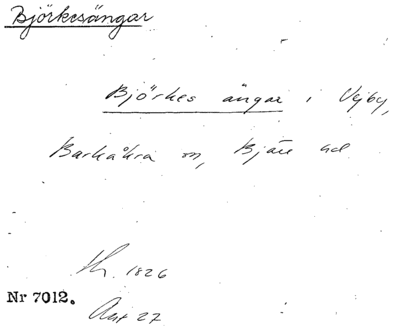 Björkesängar
Björkes ängar i Vejby,
Barkåkra sn, Bjäre hd
Hr. 1826
Nr 7012.
Akt 27